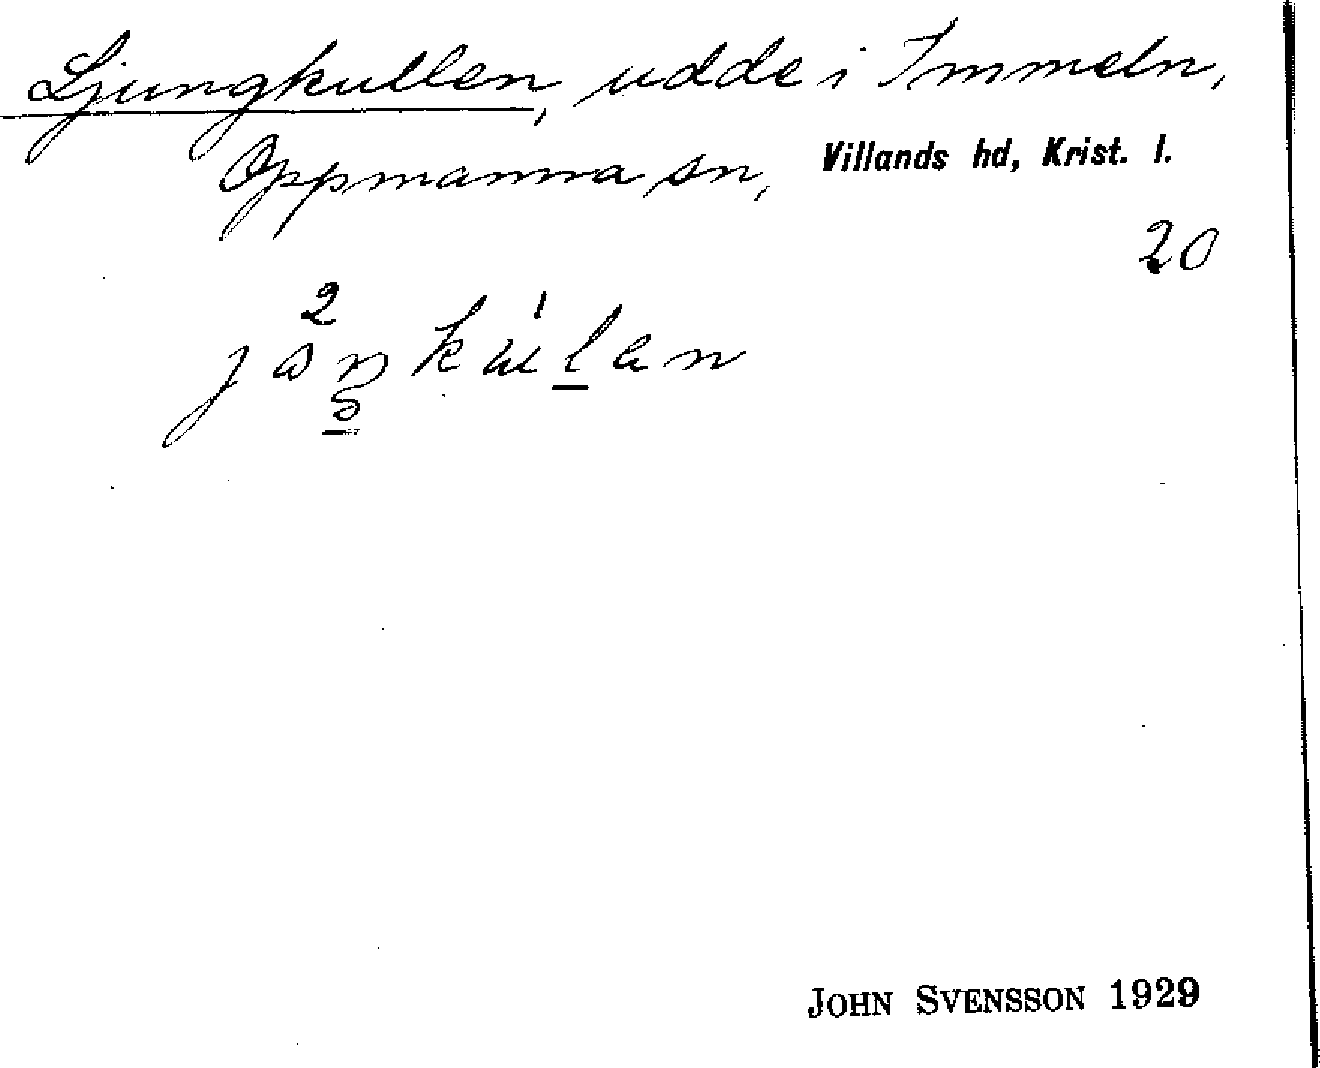 Ljungkullen, udde i Immeln,
Oppmanna sn, Villands hd, Krist. l.
20
JOHN SVENSSON 1929